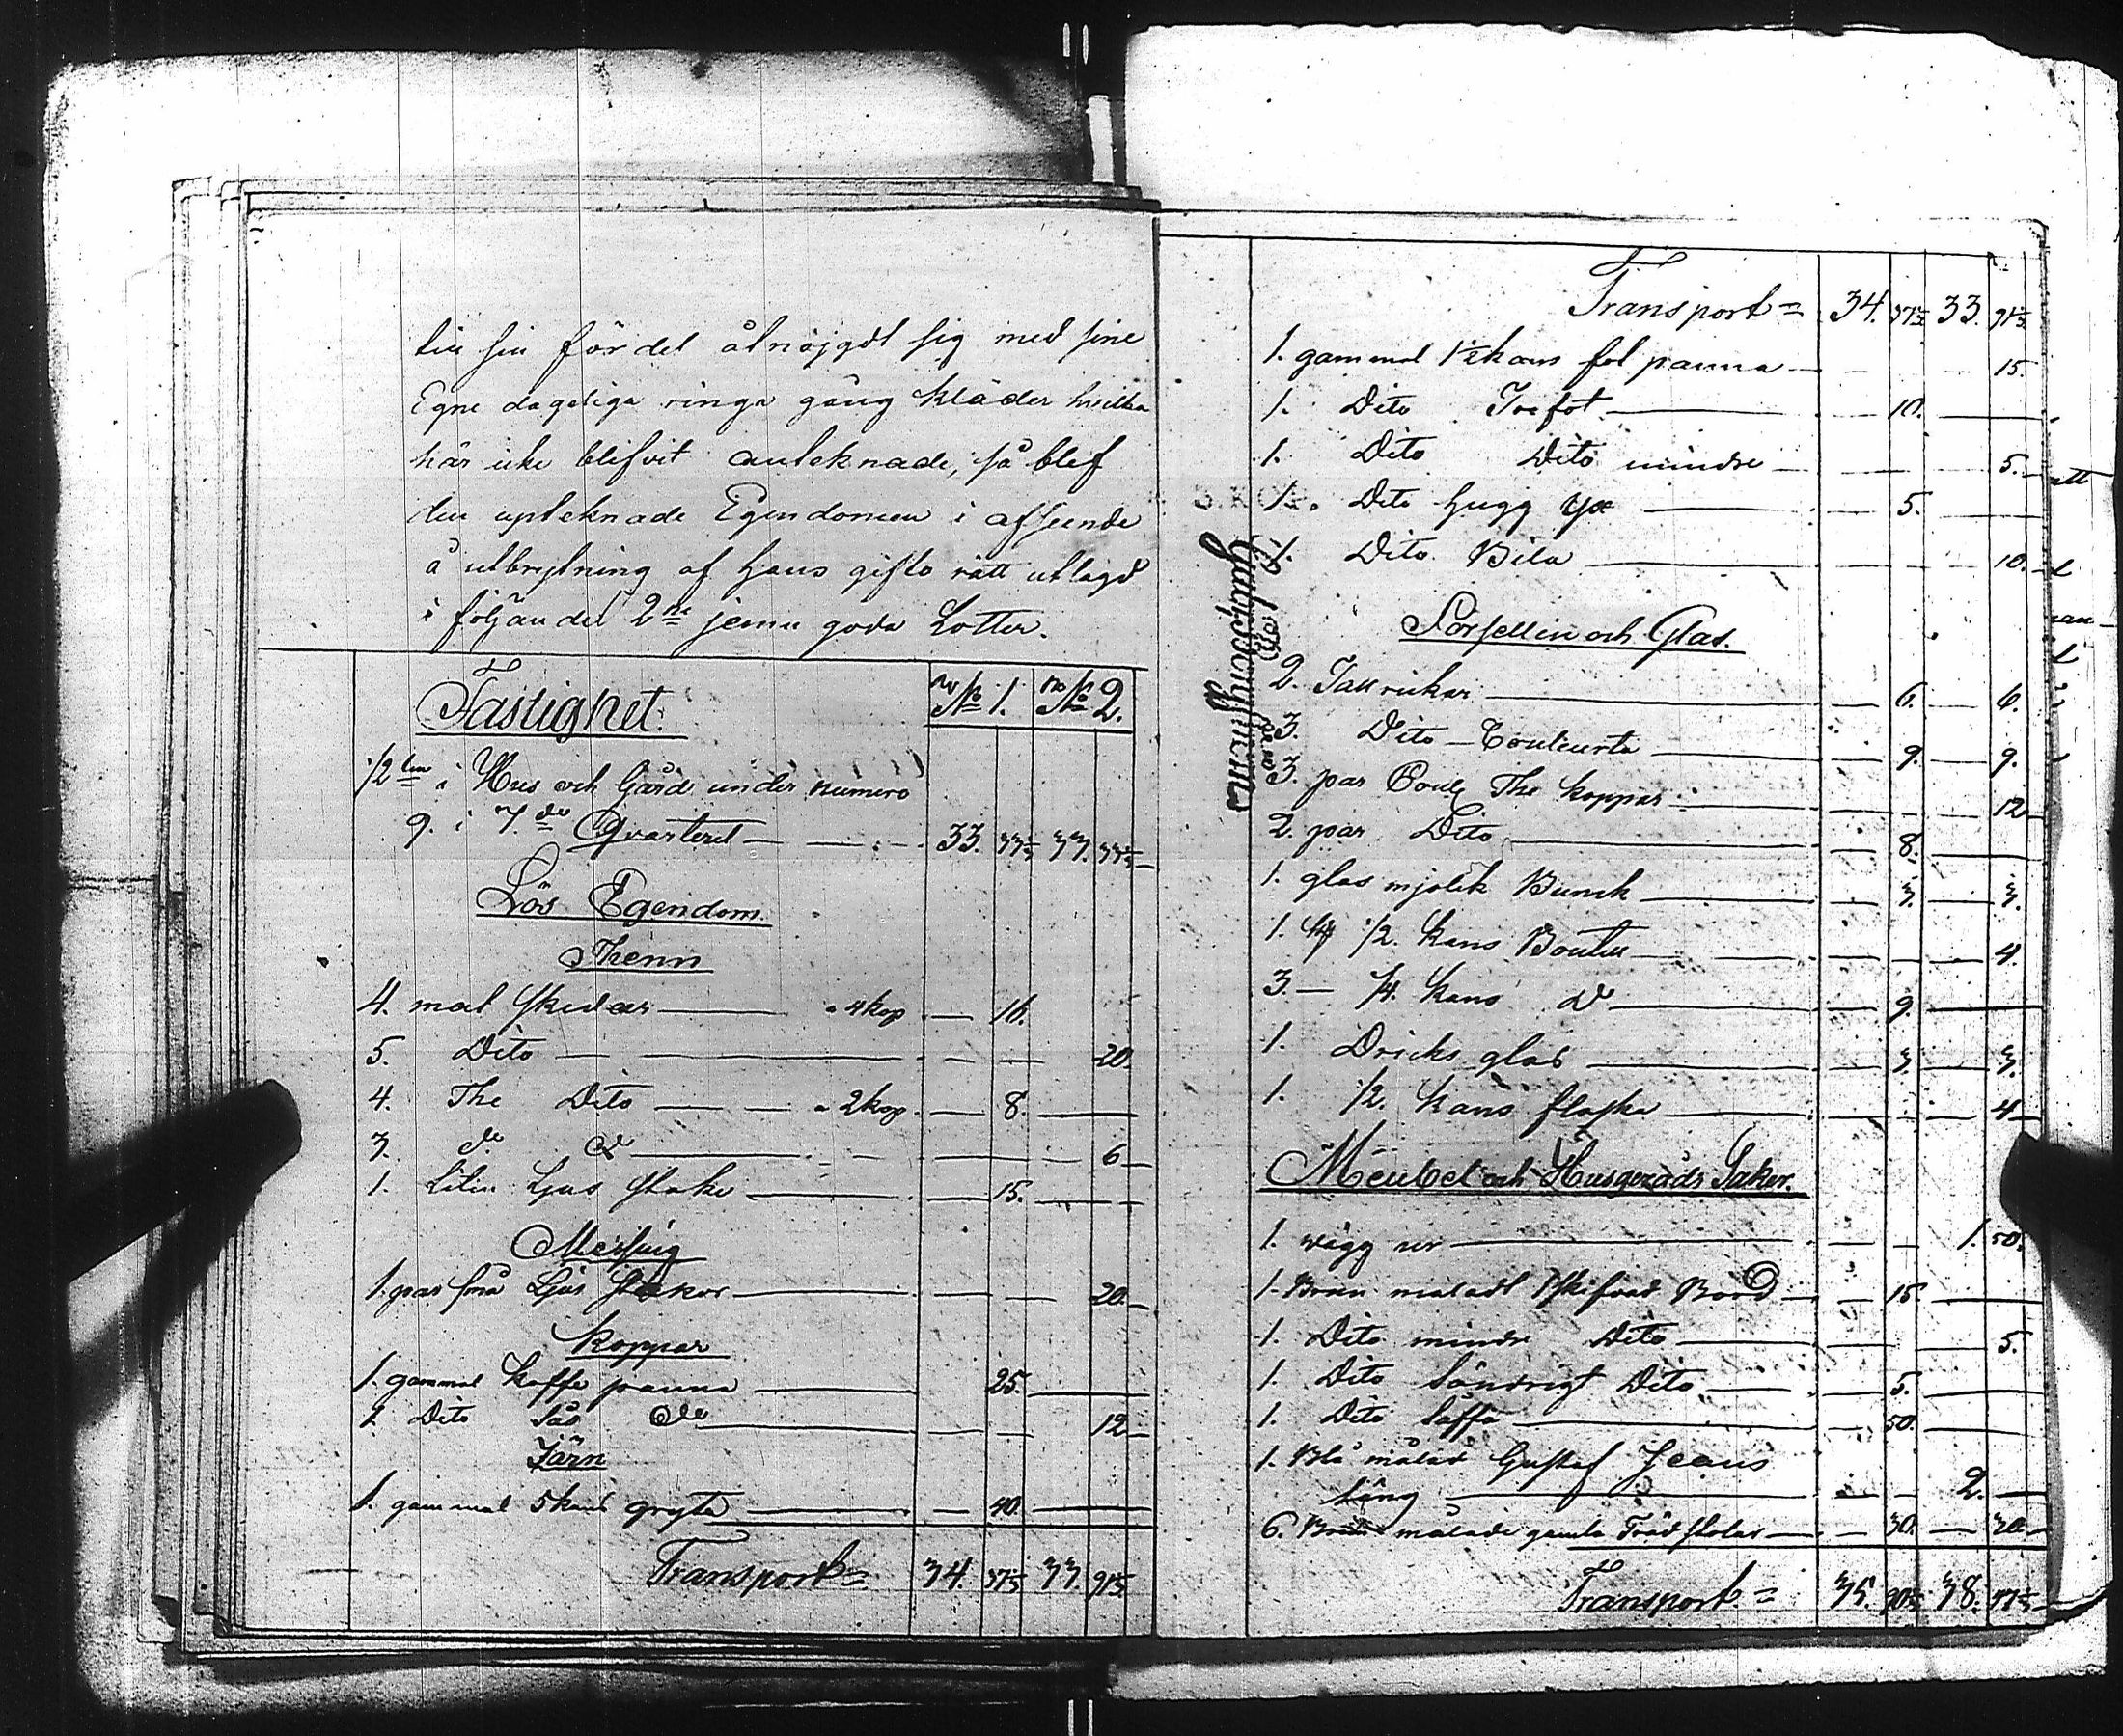 sin för det åtnöjgdt sig med sine
Egne dageliga ringa gång kläder hvilka
här icke blifvit anteknade, så blef
den upteknade Egendomen i afseende
å utbrytning af hans gifto rätt utlagd
i följande 2ne jemn goda Lotter.
Fastighet.
No 1. No 2.
1/2 ten i Hus och Gård under numero
9. i 7.de Qvarteret 33. 33 1/3 33. 33 1/3
Lös Egendom.
Thenn
4. mat skedar a 4 kop 16.
5. Dito 20.
4. The Dito a 2 kop. 8.
3. do do 6
1. Liten Ljus stake 15.
Messing
1. par små Ljus stakor 20.
Koppar
1. gammal kaffe panna 25.
1. Dito Sås do 12
Järn
1. gammal 5 kans gryta 40.
Transport = 34. 37 1/3 33. 91 1/3
Transport = 34. 37 1/3 33. 91 1/3
1. gammal 1 1/2 kans panna 15.
1. Dito Trefot 10.
1. Dito Dito mindre 5.
1. Dito hugg yxe 5.
1. Dito Bila 10.
Porsellin och Glas.
2. Tallrickar 6. 6.
3. Dito Couleurta 9. 9.
3. par Coul The koppar 12
2. par Dito 8.
1. glas mjölk Bunck 3. 3.
1. 1/2. kans Boutell 4.
3. 1/4. kans do 9.
1. Dricks glas 3. 3.
1. 1/2. kans flaska 4
Meubel och Husgeråds Saker.
1. vägg ur 1. 50.
1. Brun måladt skifvad Bord 15.
1. Dito mindre Dito 5.
1. Dito Söndrigt Dito 5.
1. Dito Soffa 50.
1. Blå målad Gustaf
Säng 2.
6. Brun målade gamla Trädstolar 30. 30
Transport = 35. 90 1/3 38. 47 1/3